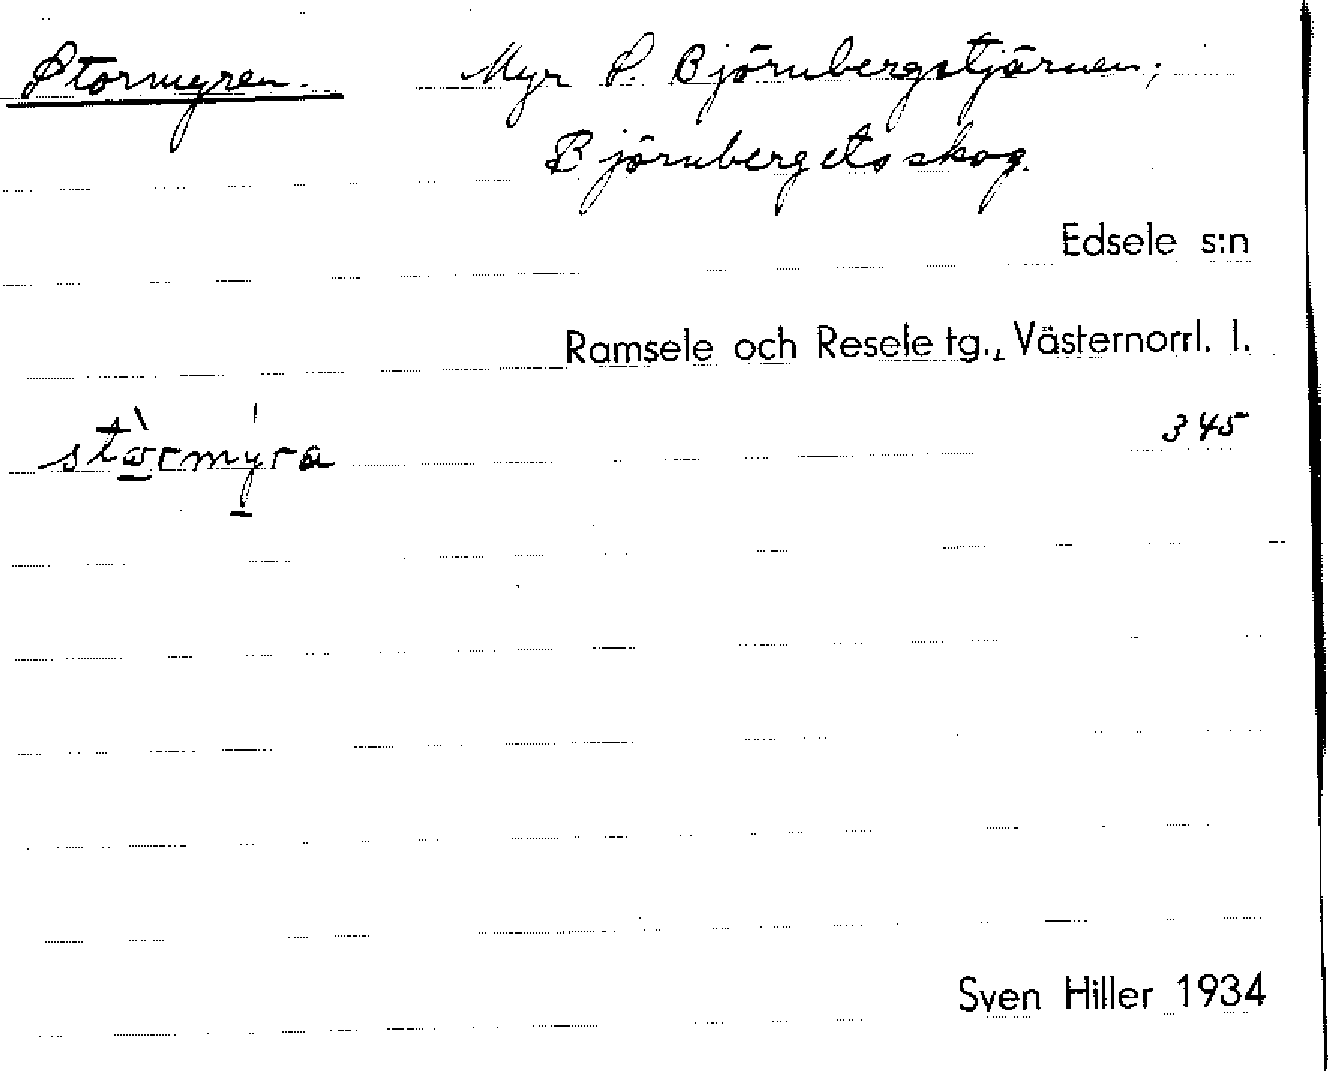 Stormyren. Myr S. Björnbergstjärnen;
Björnbergets skog.
Edsele s:n
Ramsele och Resele tg., Västernorrl. l.
stàrmýra 345
Sven Hiller 1934